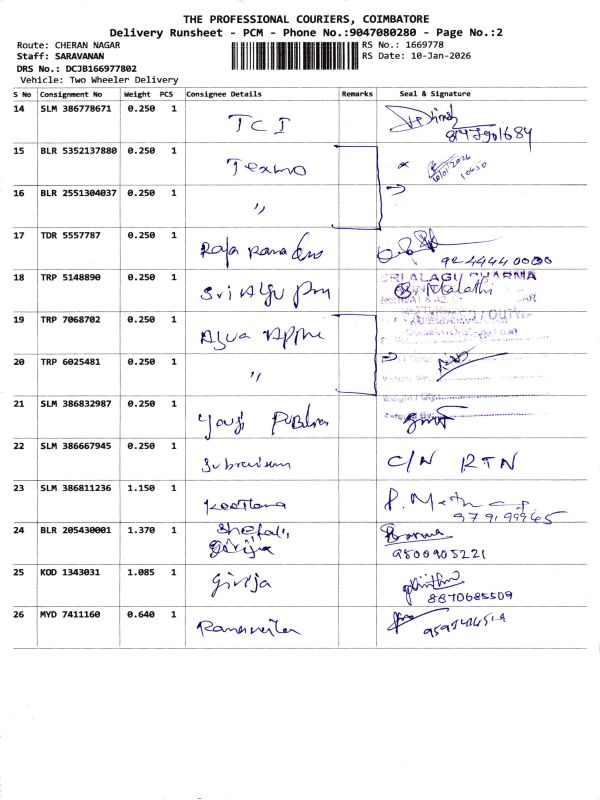 THE PROFESSIONAL COURIERS, COIMBATORE
Delivery Runsheet - PCM - Phone No.:9047080280 - Page No.:2
Route: CHERAN NAGAR
RS No.: 1669778
Staff: SARAVANAN
RS Date: 10-Jan-2026
DRS No.: DCJB166977802
Vehicle: Two Wheeler Delivery
S No Consignment No Weight PCS Consignee Details Remarks Seal & Signature
14 SLM 386778671 0.250 1 TCI
15 BLR 5352137880 0.250 1 Texmo
16 BLR 2551304037 0.250 1 〃
17 TDR 5557787 0.250 1
9244440000
18 TRP 5148890 0.250 1 Sri Algu Malathi
SRI ALAGU PHARMA
19 TRP 7068702 0.250 1
20 TRP 6025481 0.250 1 〃
21 SLM 386832987 0.250 1
22 SLM 386667945 0.250 1 C/N RTN
23 SLM 386811236 1.150 1
24 BLR 205430001 1.370 1 Girija
9500905221
25 KOD 1343031 1.085 1 Girija
8870685509
26 MYD 7411160 0.640 1